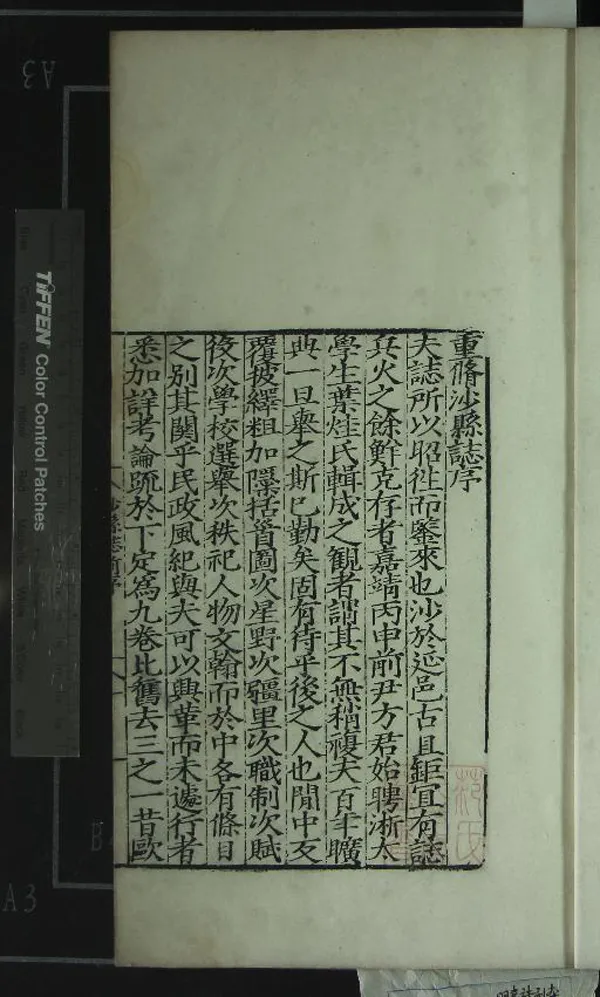 重脩沙縣誌序
夫誌所以昭徃而鑒來也沙於延邑古且鉅宜有誌
兵火之餘鮮克存者嘉靖丙申前尹方君始聘浙太
學生葉烓氏輯成之觀者謂其不無稍複夫百年曠
典一旦舉之斯已勤矣固有待乎後之人也閒中反
覆披繹粗加檃括首圖次星野次疆里次職制次賦
役次學校選舉次秩祀人物文翰而於中各有條目
之別其關乎民政風紀與夫可以興革而未遽行者
悉加詳考論疏於下定為九卷比舊去三之一昔歐
沙縣誌前序
TIFFEN Color Control Patches
A3
A3
B